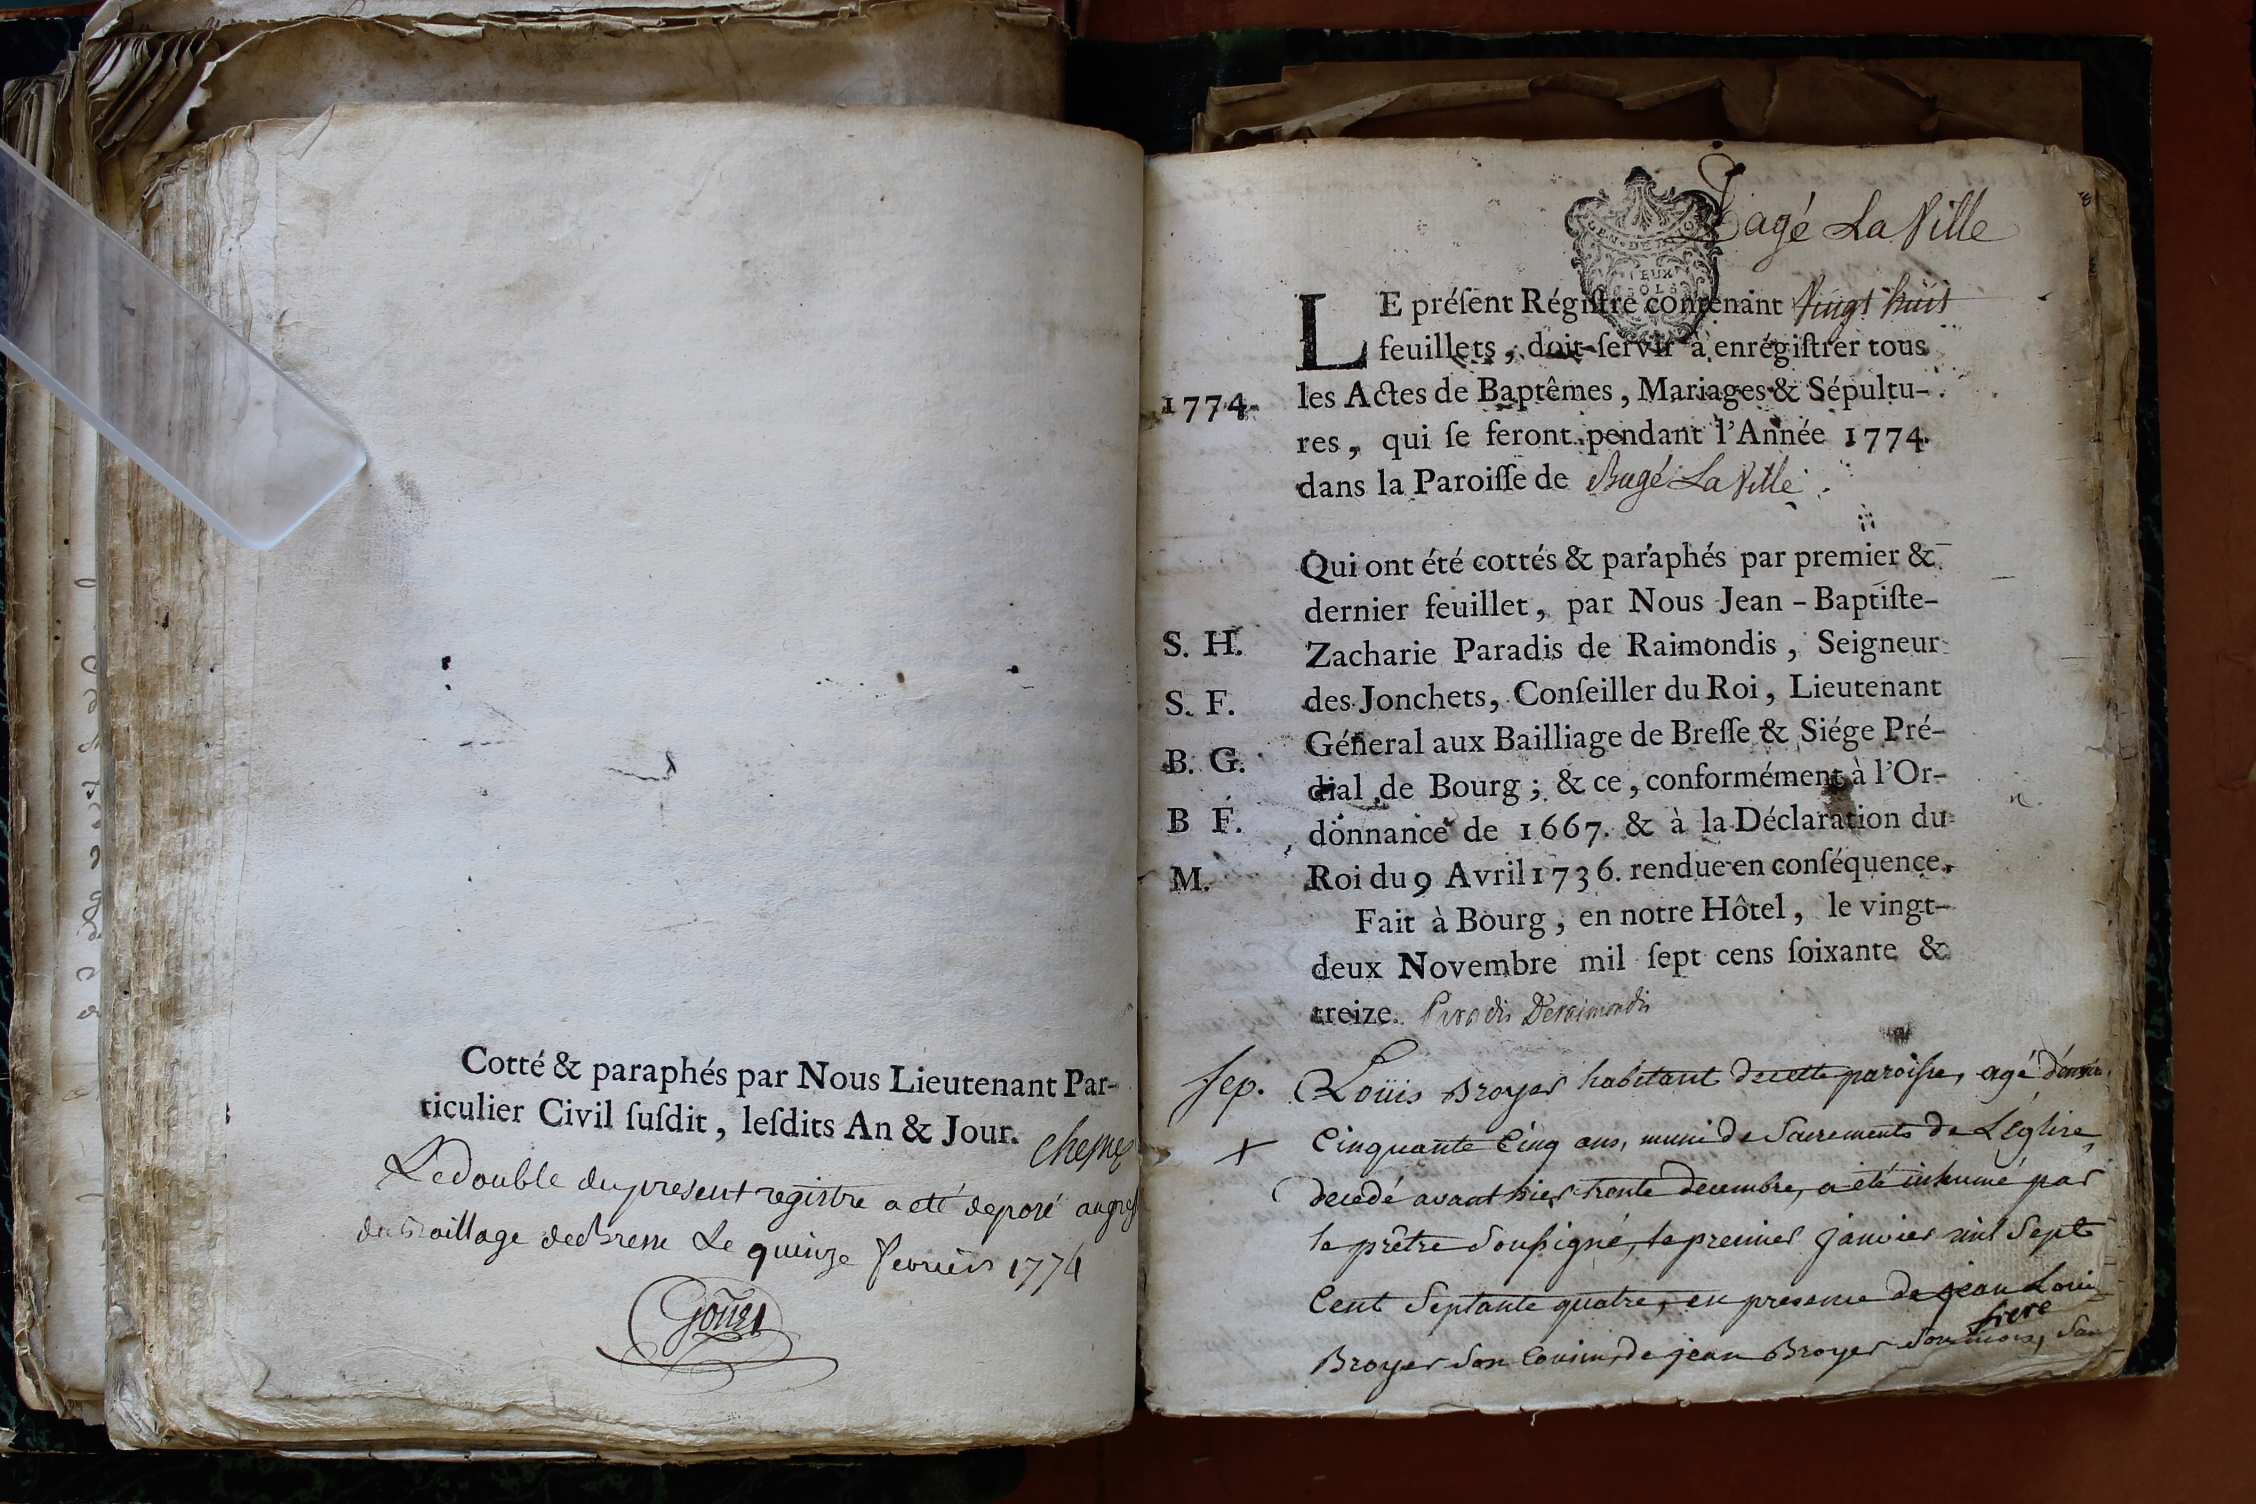 Cotté & paraphés par Nous Lieutenant Par-
ticulier Civil ſuſdit, leſdits An & Jour.
Le double du present registre a eté deposé au greff
du Bailliage de Bresse Le quinze fevrier 1774
Bagé La Ville
GEN. DE
DEUX
SOLS
LE préſent Régiſtre contenant Vingt huit
feuillets, doit ſervir à enrégiſtrer tous
1774.
les Actes de Baptêmes, Mariages & Sépultu-
res, qui ſe feront pendant l'Année 1774.
dans la Paroiſſe de Bagé La Ville
Qui ont été cottés & paraphés par premier &
dernier feuillet, par Nous Jean-Baptiſte-
S. H.
Zacharie Paradis de Raimondis, Seigneur
S. F.
des Jonchets, Conſeiller du Roi, Lieutenant
B. G.
Géneral aux Bailliage de Breſſe & Siége Pré-
dial de Bourg; & ce, conformément à l'Or-
B F.
donnance de 1667. & à la Déclaration du
M.
Roi du 9 Avril 1736. rendue en conſéquence.
Fait à Bourg, en notre Hôtel, le vingt-
deux Novembre mil ſept cens ſoixante &
treize. Paradis Deraimondis
sep. Loüis Broyer habitant de cette paroisse, agé d'environ
+ Cinquante Cinq ans, muni de Sacrements de L'église,
decedé avant hier trente decembre, a été inhumé par
le prêtre Soussigné, le premier janvier mil Sept
Cent Septante quatre, en presence de jean Louis
frere
Broyer Son Cousin, de jean Broyer Son